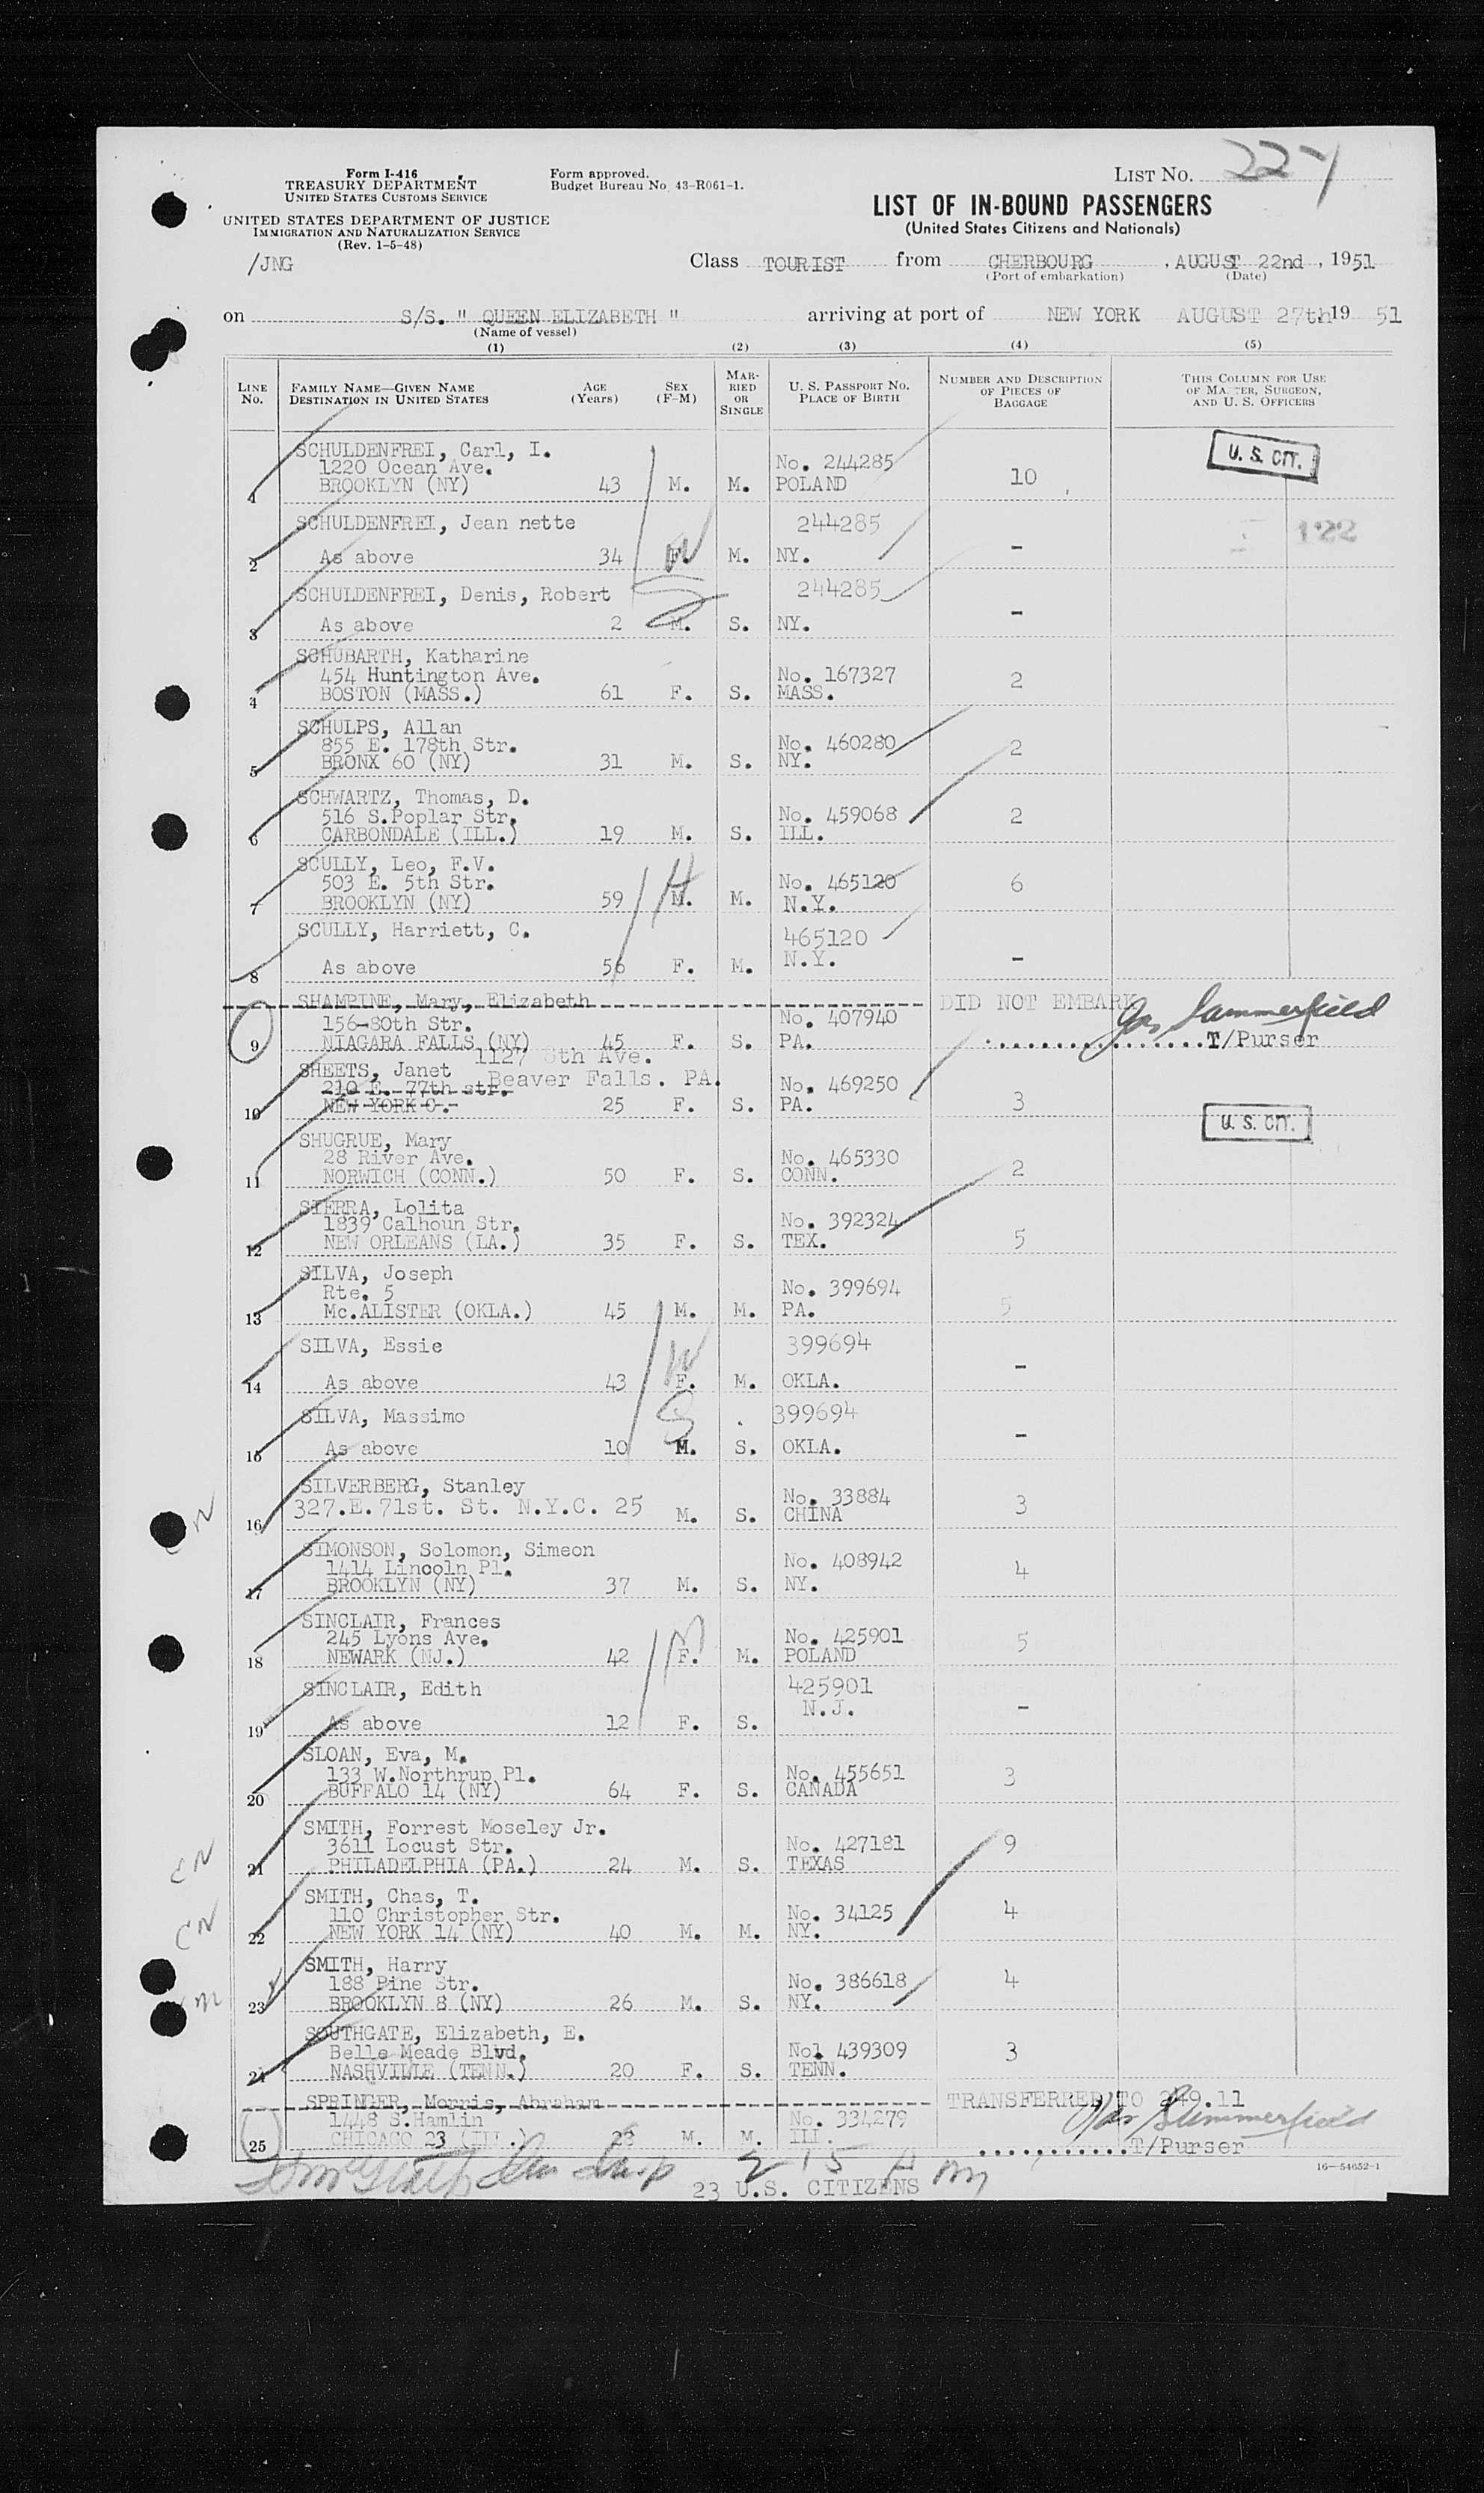 Form I-416
TREASURY DEPARTMENT
UNITED STATES CUSTOMS SERVICE
UNITED STATES DEPARTMENT OF JUSTICE
IMMIGRATION AND NATURALIZATION SERVICE
(Rev. 1-5-48)
/JNG
Form approved.
Budget Bureau No. 43-R061-1.
LIST No. 227
LIST OF IN-BOUND PASSENGERS
(United States Citizens and Nationals)
Class TOURIST from CHERBOURG, AUGUST 22nd, 1951
(Port of embarkation) (Date)
on S/S. " QUEEN ELIZABETH " arriving at port of NEW YORK AUGUST 27th. 19 51
(Name of vessel)
(1) (2) (3) (4) (5)
LINE No. FAMILY NAME—GIVEN NAME DESTINATION IN UNITED STATES AGE (Years) SEX (F-M) MARRIED OR SINGLE U. S. PASSPORT NO. PLACE OF BIRTH NUMBER AND DESCRIPTION OF PIECES OF BAGGAGE THIS COLUMN FOR USE OF MASTER, SURGEON, AND U. S. OFFICERS
SCHULDENFREI, Carl, I.
1220 Ocean Ave. No. 244285 U. S. CIT.
1 BROOKLYN (NY) 43 M. M. POLAND 10
SCHULDENFREI, Jean nette 244285 122
2 As above 34 F. M. NY. -
SCHULDENFREI, Denis, Robert 244285
3 As above 2 M. S. NY. -
SCHUBARTH, Katharine
454 Huntington Ave. No. 167327
4 BOSTON (MASS.) 61 F. S. MASS. 2
SCHULPS, Allan
855 E. 178th Str. No. 460280
5 BRONX 60 (NY) 31 M. S. NY. 2
SCHWARTZ, Thomas, D.
516 S.Poplar Str. No. 459068
6 CARBONDALE (ILL.) 19 M. S. ILL. 2
SCULLY, Leo, F.V.
503 E. 5th Str. No. 465120
7 BROOKLYN (NY) 59 M. M. N.Y. 6
SCULLY, Harriett, C. 465120
8 As above 56 F. M. N.Y. -
SHAMPINE, Mary, Elizabeth DID NOT EMBARK
156-80th Str. No. 407940 Jas Sammerfield
9 NIAGARA FALLS (NY) 45 F. S. PA. T/Purser
1127 8th Ave.
SHEETS, Janet Beaver Falls. PA.
210 E. 77th str. No. 469250
10 NEW YORK C.- 25 F. S. PA. 3
SHUGRUE, Mary U. S. CIT.
28 River Ave. No. 465330
11 NORWICH (CONN.) 50 F. S. CONN. 2
SIERRA, Lolita
1839 Calhoun Str. No. 392324
12 NEW ORLEANS (LA.) 35 F. S. TEX. 5
SILVA, Joseph
Rte. 5 No. 399694
13 Mc.ALISTER (OKLA.) 45 M. M. PA. 5
SILVA, Essie 399694
14 As above 43 F. M. OKLA. -
SILVA, Massimo 399694
15 As above 10 M. S. OKLA. -
SILVERBERG, Stanley No. 33884
16 327.E.71st. St. N.Y.C. 25 M. S. CHINA 3
SIMONSON, Solomon, Simeon
1414 Lincoln Pl. No. 408942
17 BROOKLYN (NY) 37 M. S. NY. 4
SINCLAIR, Frances
245 Lyons Ave. No. 425901
18 NEWARK (NJ.) 42 F. M. POLAND 5
SINCLAIR, Edith 425901
19 As above 12 F. S. N.J. -
SLOAN, Eva, M.
133 W.Northrup Pl. No. 455651
20 BUFFALO 14 (NY) 64 F. S. CANADA 3
SMITH, Forrest Moseley Jr.
3611 Locust Str. No. 427181
21 PHILADELPHIA (PA.) 24 M. S. TEXAS 9
SMITH, Chas, T.
110 Christopher Str. No. 34125
22 NEW YORK 14 (NY) 40 M. M. NY. 4
SMITH, Harry
188 Pine Str. No. 386618
23 BROOKLYN 8 (NY) 26 M. S. NY. 4
SOUTHGATE, Elizabeth, E.
Belle Meade Blvd. No1 439309
24 NASHVILLE (TENN.) 20 F. S. TENN. 3
SPRINGER, Morris, Abraham TRANSFERRED TO 249.11
1448 S.Hamlin No. 334279 Jas Summerfield
25 CHICAGO 23 (ILL.) M. M. ILL. T/Purser
16-54652-1
23 U.S. CITIZENS